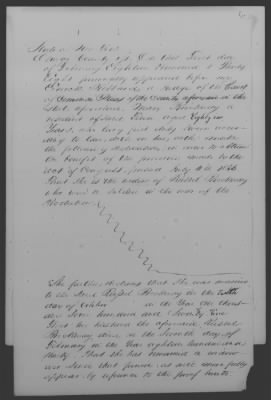 State of New York
County of On this first day
of February Eighteen hundred & thirty
Eight personally appeared before me
a Judge of the Court
of Common Pleas of the County aforesaid in the
State aforesaid, Mary
resident of said Town aged Eighty six
Years, who being first duly sworn according
to law, doth on her oath make
the following declaration, in order to obtain
the benefit of the provision made by the
act of Congress, passed July 4th 1836
That she is the widow of Russel
who was a soldier in the war of the
Revolution
She further declares that she was married
to the said Russel on the
day of October in the Year one thousand
Seven hundred and Seventy five
That her husband the aforesaid Russel
died on the Seventh day of
February in the Year eighteen hundred and
thirty, That she has remained a widow
ever since that period, as will more fully
appear by reference to the proof hereto